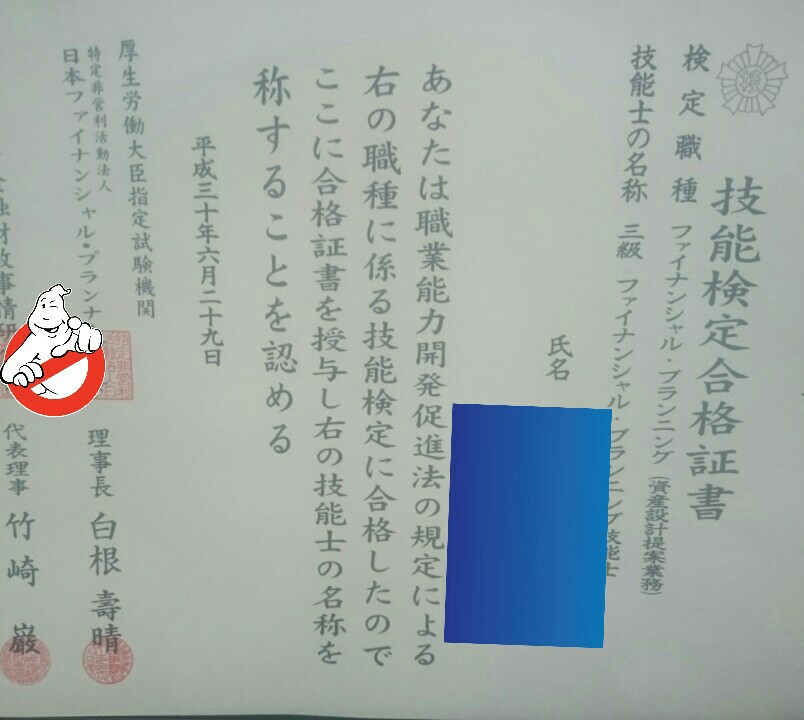 技能検定合格証書
検定職種 ファイナンシャル・プランニング(資産設計提案業務)
技能士の名称 三級 ファイナンシャル・プランニング技能士
氏名
あなたは職業能力開発促進法の規定による
右の職種に係る技能検定に合格したので
ここに合格証書を授与し右の技能士の名称を
称することを認める
平成三十年六月二十九日
厚生労働大臣指定試験機関
特定非営利活動法人
日本ファイナンシャル・プランナ
理事長 白根 壽晴
融財政事情研
代表理事 竹崎 巌